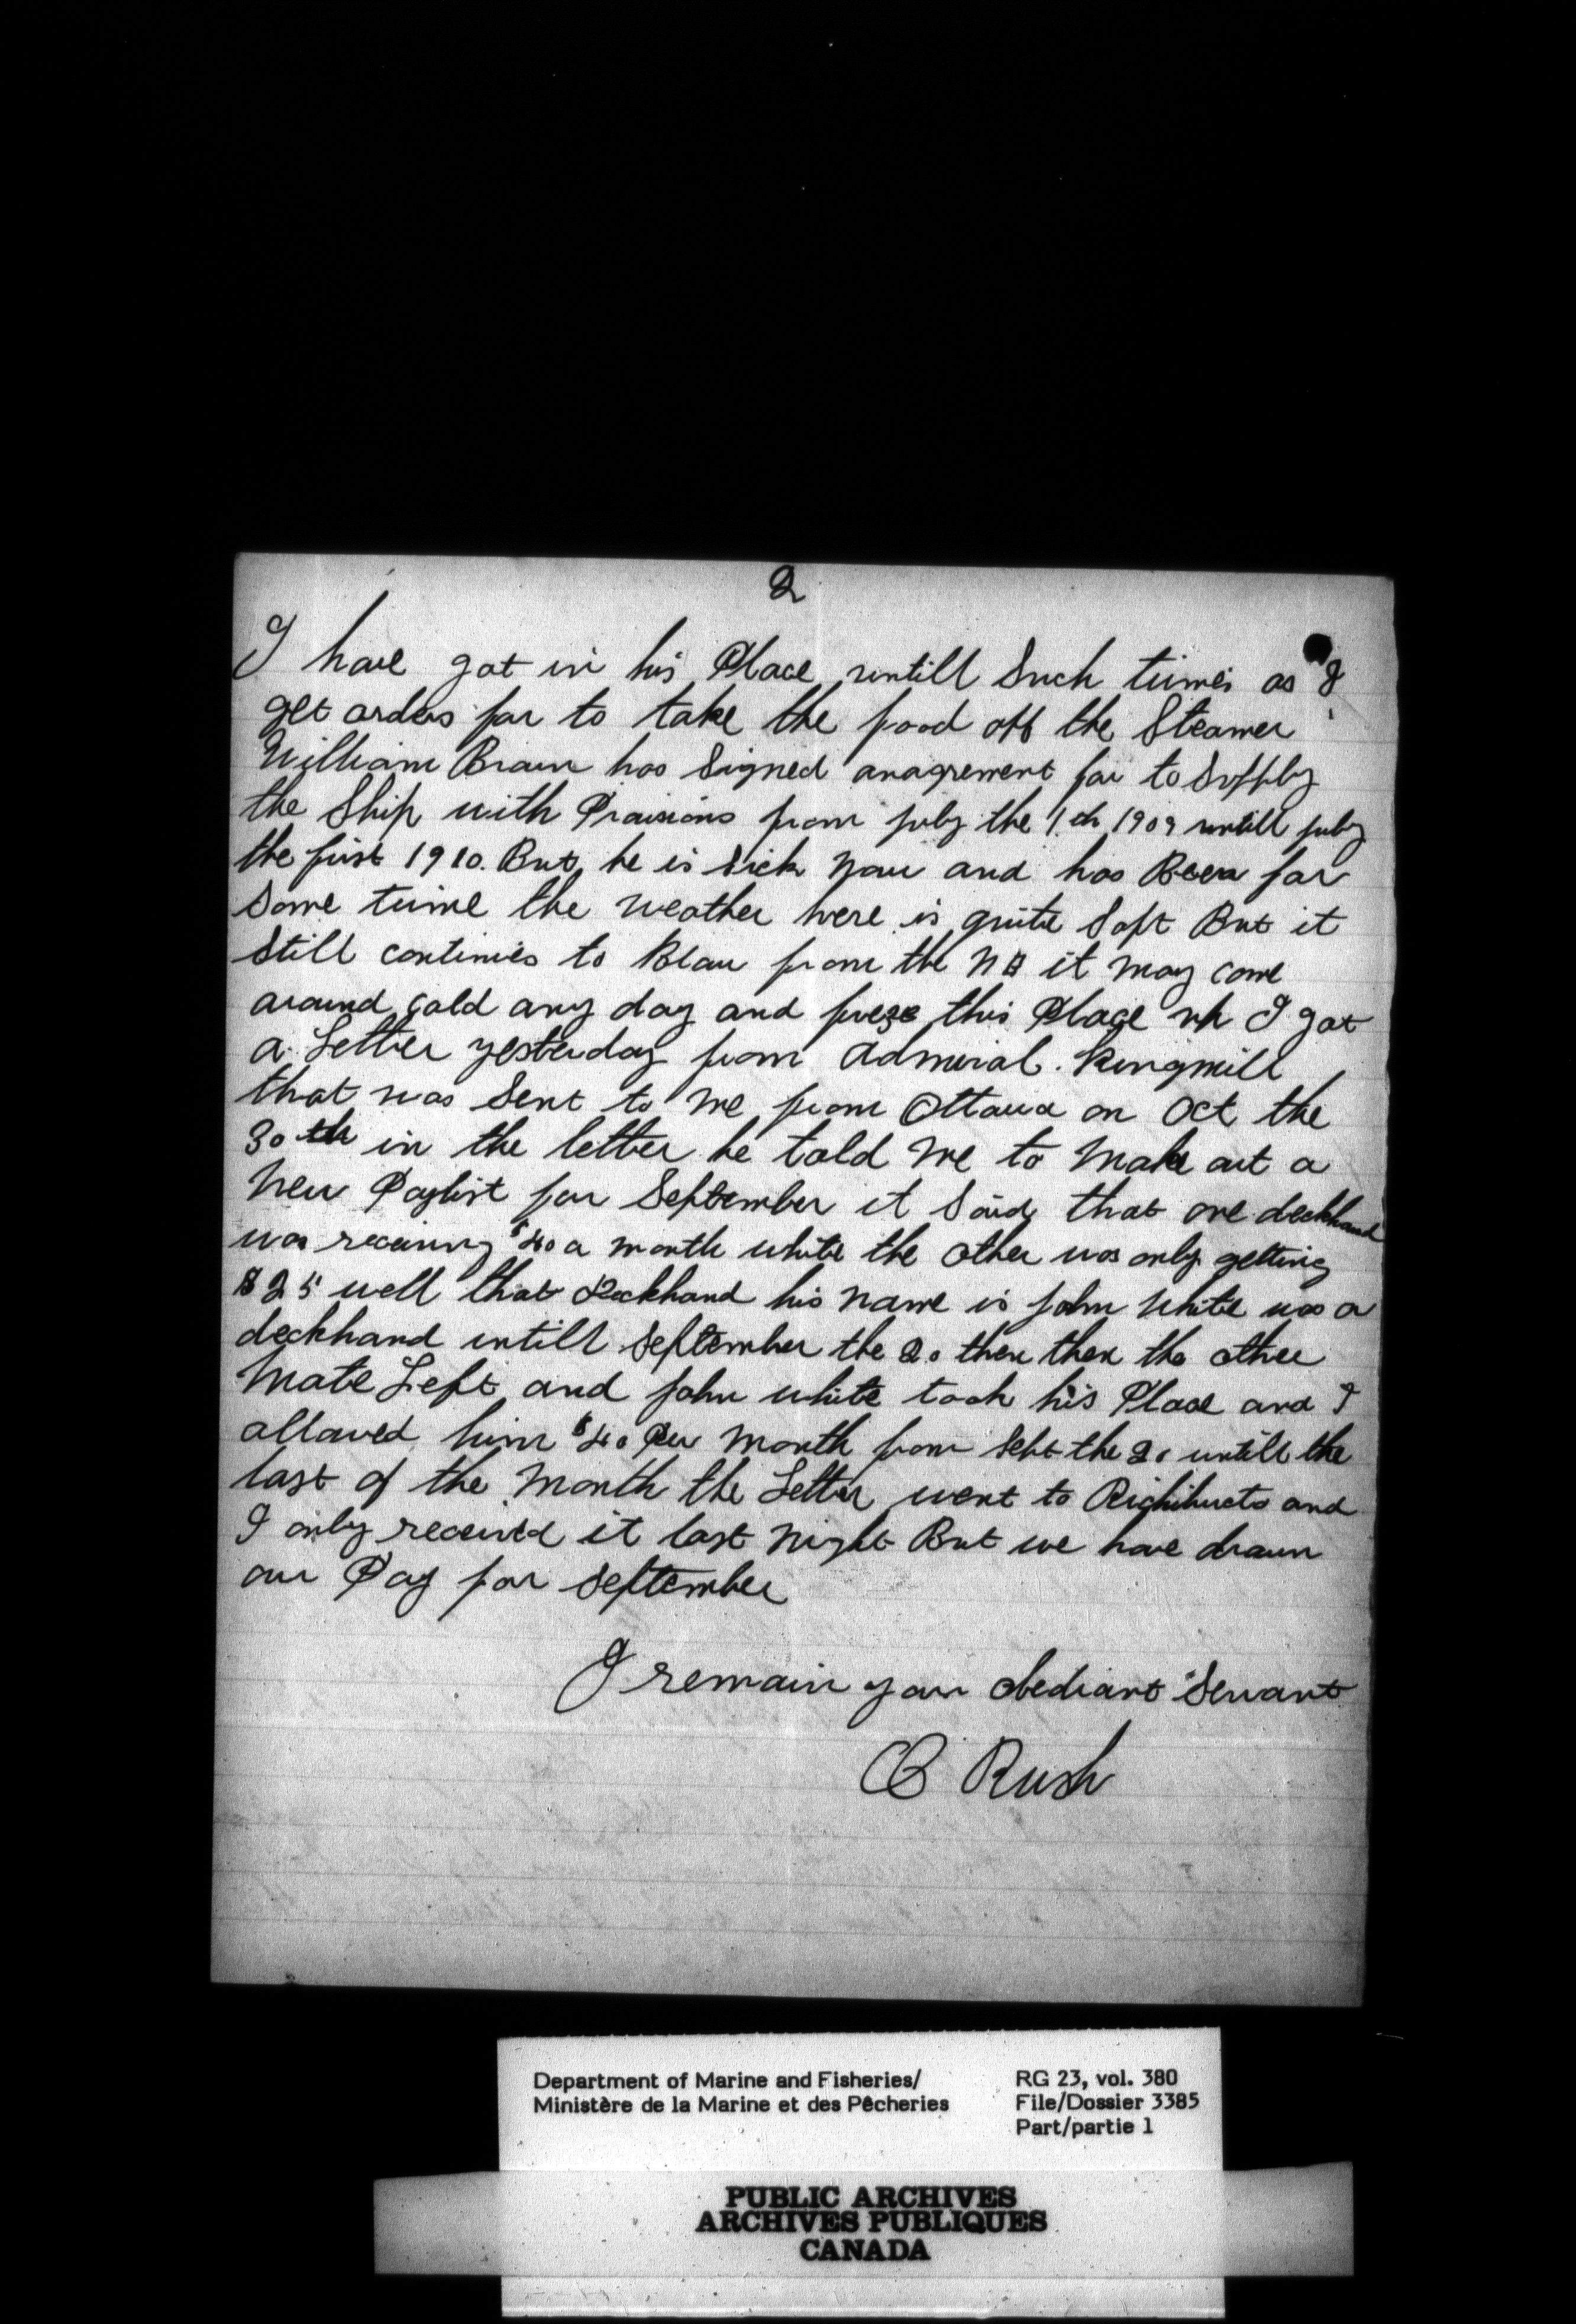 2
I have got in his Place untill Such times as I
get orders for to take the food off the Steamer
William Brain has Signed anagrement for to Supply
the Ship with Provisions from july the 1th 1909 untill july
the first 1910. But he is Sick now and has Been for
Some time the weather here is quite Soft But it
Still continues to Blow from the NE it may come
around cold any day and freze this Place up I got
a Letter yesterday from Admiral. Kingmill
that was Sent to me from Ottawa on Oct the
30th in the letter he told me to make out a
New Paylist for September it Said that one deckhand
was receiving $40 a month while the other was only getting
$25 well that Deckhand his name is john White was a
deckhand untill September the 20 then then the other
Mate Left and john white took his Place and I
allowed him $40 Per month from Sept the 20 untill the
last of the month the Letter went to Richibucto and
I only received it last night But we have drawn
our Pay for September
I remain your obediant Servant
C Rush
Department of Marine and Fisheries/ RG 23, vol. 380
Ministère de la Marine et des Pêcheries File/Dossier 3385
Part/partie 1
PUBLIC ARCHIVES
ARCHIVES PUBLIQUES
CANADA